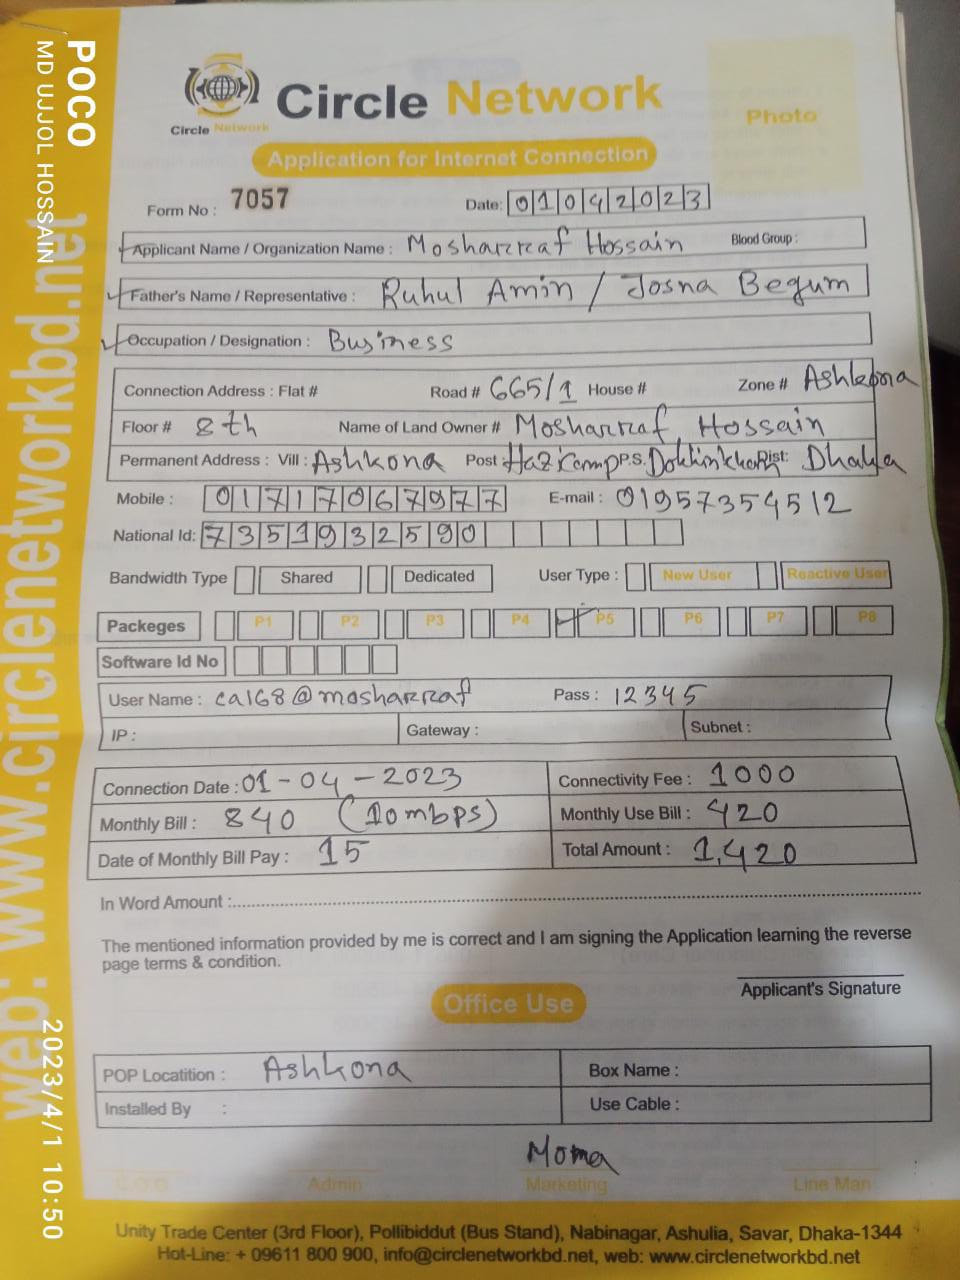 POCO
MD UJJOL HOSSAIN
web: www.circlenetworkbd.net
2023/4/1 10:50
Circle Network
Circle Network
Photo
Application for Internet Connection
Form No : 7057 Date: 01042023
Applicant Name / Organization Name : Mosharraf Hossain Blood Group :
Father's Name / Representative : Ruhul Amin / Josna Begum
Occupation / Designation : Business
Connection Address : Flat # Road # 665/1 House # Zone # Ashkona
Floor # 8th Name of Land Owner # Mosharraf Hossain
Permanent Address : Vill : Ashkona Post : Haz Camp P.S. Dokhinkhan Dist: Dhaka
Mobile : 01717067977 E-mail : 01957354512
National Id: 7351932590
Bandwidth Type Shared Dedicated User Type : New User Reactive User
Packeges P1 P2 P3 P4 P5 P6 P7 P8
Software Id No
User Name : ca168@mosharraf Pass : 12345
IP : Gateway : Subnet :
Connection Date : 01-04-2023 Connectivity Fee : 1000
Monthly Bill : 840 (10mbps) Monthly Use Bill : 420
Date of Monthly Bill Pay : 15 Total Amount : 1,420
In Word Amount :
The mentioned information provided by me is correct and I am signing the Application learning the reverse
page terms & condition.
Applicant's Signature
Office Use
POP Locatition : Ashkona Box Name :
Installed By : Use Cable :
C.O.O Admin Marketing Line Man
Unity Trade Center (3rd Floor), Pollibiddut (Bus Stand), Nabinagar, Ashulia, Savar, Dhaka-1344
Hot-Line: + 09611 800 900, info@circlenetworkbd.net, web: www.circlenetworkbd.net